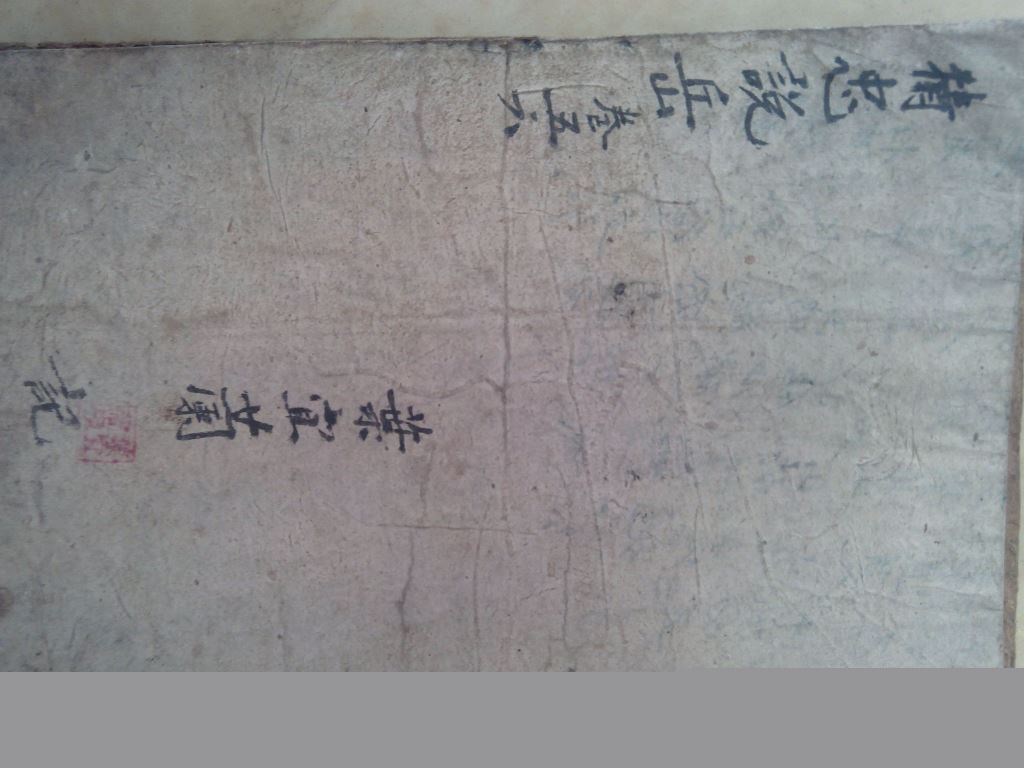 精忠說岳
卷五六
葉宜蘭
記